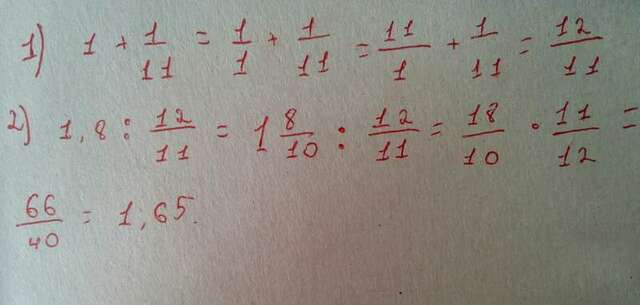 1) 1 + 1/11 = 1/1 + 1/11 = 11/1 + 1/11 = 12/11
2) 1,8 : 12/11 = 1 8/10 : 12/11 = 18/10 · 11/12 =
66/40 = 1,65.